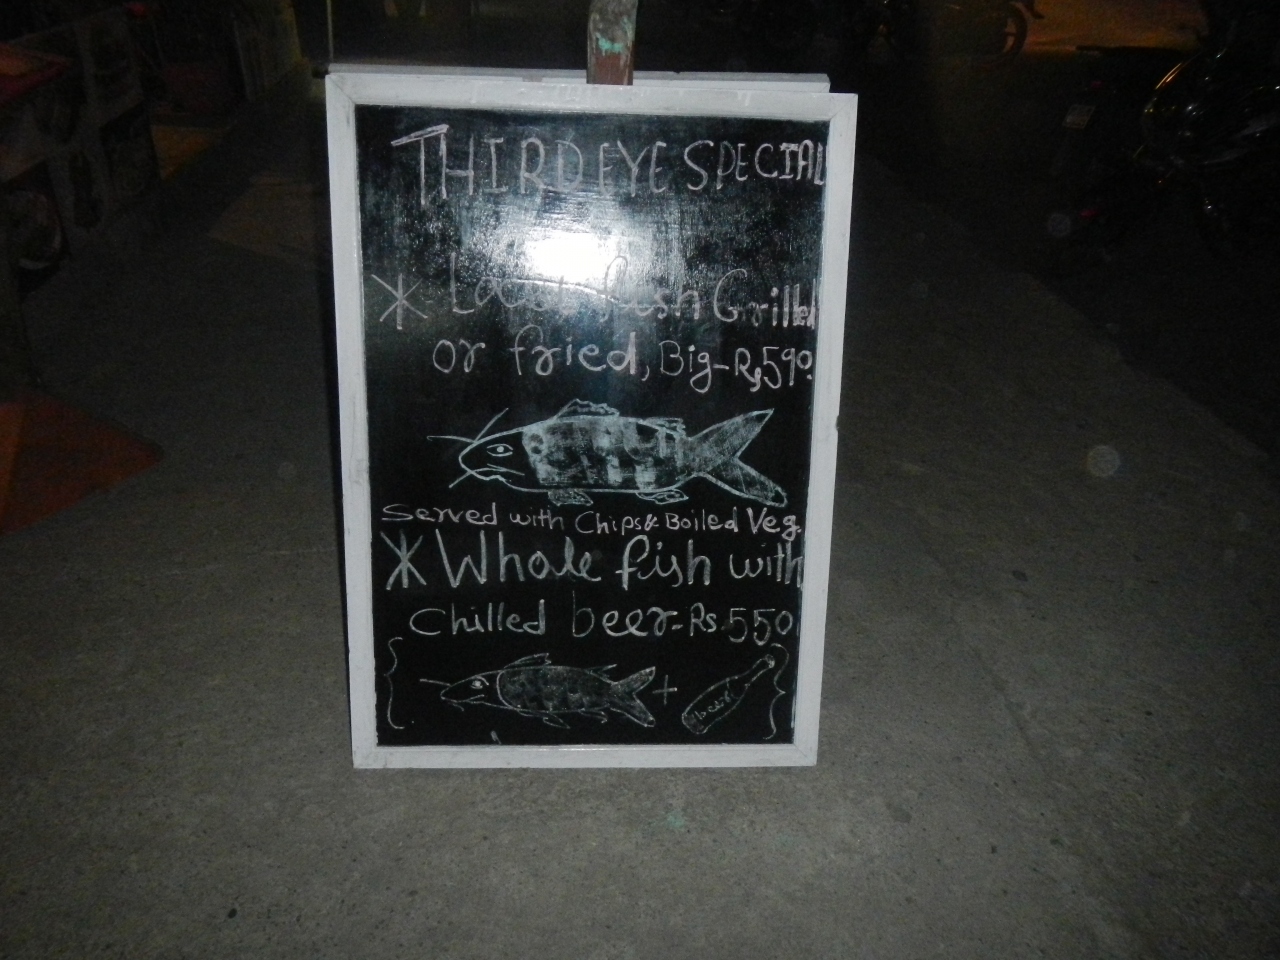 THIRD EYE SPECIAL
* Local fish Grilled
or fried, Big-Rs590.
Served with Chips & Boiled Veg.
* Whole fish with
Chilled beer-Rs.550
{ + beer }